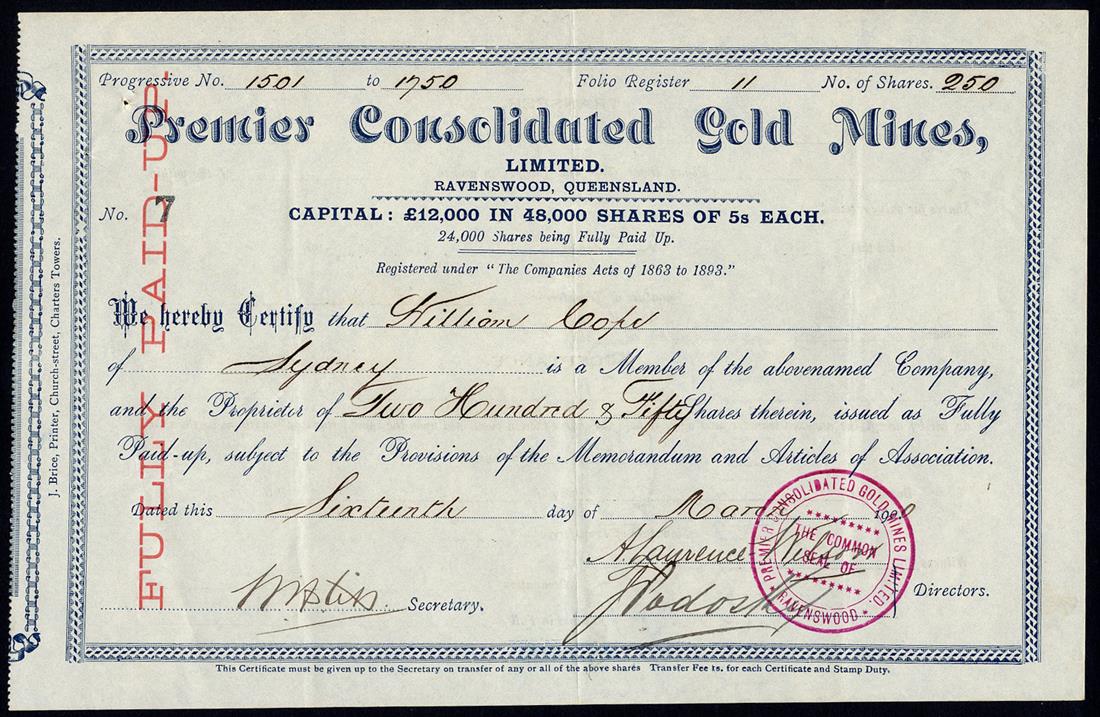 Progressive No. 1501 to 1750 Folio Register 11 No. of Shares. 250
Premier Consolidated Gold Mines,
LIMITED.
RAVENSWOOD, QUEENSLAND.
No. 7
CAPITAL: £12,000 IN 48,000 SHARES OF 5s EACH.
24,000 Shares being Fully Paid Up.
Registered under "The Companies Acts of 1863 to 1893."
We hereby Certify that William Cope
of Sydney is a Member of the abovenamed Company,
and the Proprietor of Two Hundred & Fifty Shares therein, issued as Fully
Paid-up, subject to the Provisions of the Memorandum and Articles of Association.
Dated this Sixteenth day of March 190
A Laurence
Secretary.
Directors.
PREMIER CONSOLIDATED GOLD MINES LIMITED.
THE COMMON
SEAL OF
RAVENSWOOD
This Certificate must be given up to the Secretary on transfer of any or all of the above shares Transfer Fee 1s. for each Certificate and Stamp Duty.
FULLY PAID-UP.
J. Brice, Printer, Church-street, Charters Towers.